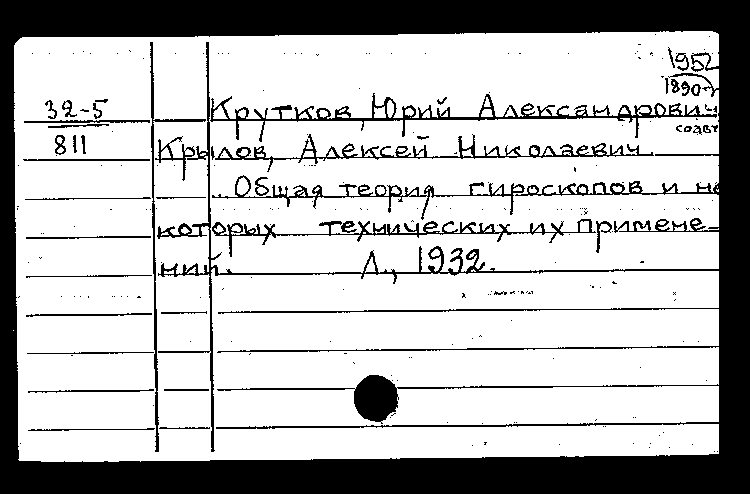 1952
1890-
32-5 Крутков, Юрий Александрович
811 соавт
Крылов, Алексей Николаевич.
.. Общая теория гироскопов и не
которых технических их примене=
ний. Л., 1932.